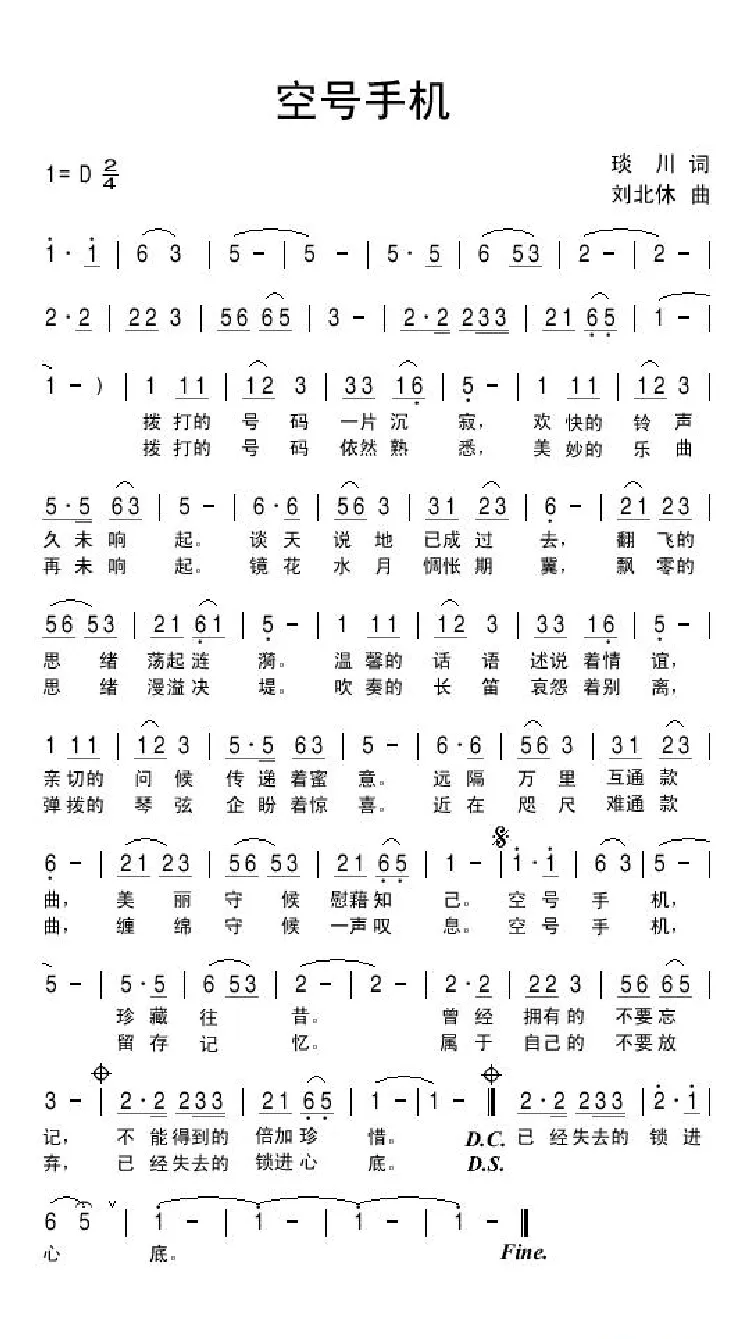 空号手机
1= D 2/4
琰 川 词
刘北休 曲
1 · 1 | 6 3 | 5 - | 5 - | 5 · 5 | 6 53 | 2 - | 2 - |
2 · 2 | 22 3 | 56 65 | 3 - | 2 · 2 233 | 21 65 | 1 - |
1 - ) | 1 11 | 12 3 | 33 16 | 5 - | 1 11 | 12 3 |
拨 打的 号 码 一片 沉 寂， 欢 快的 铃 声
拨 打的 号 码 依然 熟 悉， 美 妙的 乐 曲
5 · 5 63 | 5 - | 6 · 6 | 56 3 | 31 23 | 6 - | 21 23 |
久 未 响 起。 谈 天 说 地 已成 过 去， 翻 飞的
再 未 响 起。 镜 花 水 月 惆怅 期 冀， 飘 零的
56 53 | 21 61 | 5 - | 1 11 | 12 3 | 33 16 | 5 - |
思 绪 荡起 涟 漪。 温 馨的 话 语 述说 着情 谊，
思 绪 漫溢 决 堤。 吹 奏的 长 笛 哀怨 着别 离，
1 11 | 12 3 | 5 · 5 63 | 5 - | 6 · 6 | 56 3 | 31 23 |
亲 切的 问 候 传 递 着蜜 意。 远 隔 万 里 互通 款
弹 拨的 琴 弦 企 盼 着惊 喜。 近 在 咫 尺 难通 款
6 - | 21 23 | 56 53 | 21 65 | 1 - | 1 · 1 | 6 3 | 5 - |
曲， 美 丽 守 候 慰藉 知 己。 空 号 手 机，
曲， 缠 绵 守 候 一声 叹 息。 空 号 手 机，
5 - | 5 · 5 | 6 53 | 2 - | 2 - | 2 · 2 | 22 3 | 56 65 |
珍 藏 往 昔。 曾 经 拥有 的 不要 忘
留 存 记 忆。 属 于 自己 的 不要 放
3 - | 2 · 2 233 | 21 65 | 1 - | 1 - || 2 · 2 233 | 2 · 1 |
记， 不 能 得到的 倍加 珍 惜。 D.C. 已 经 失去的 锁 进
弃， 已 经 失去的 锁进 心 底。 D.S.
6 5 ∨ | 1 - | 1 - | 1 - | 1 - ||
心 底。 Fine.